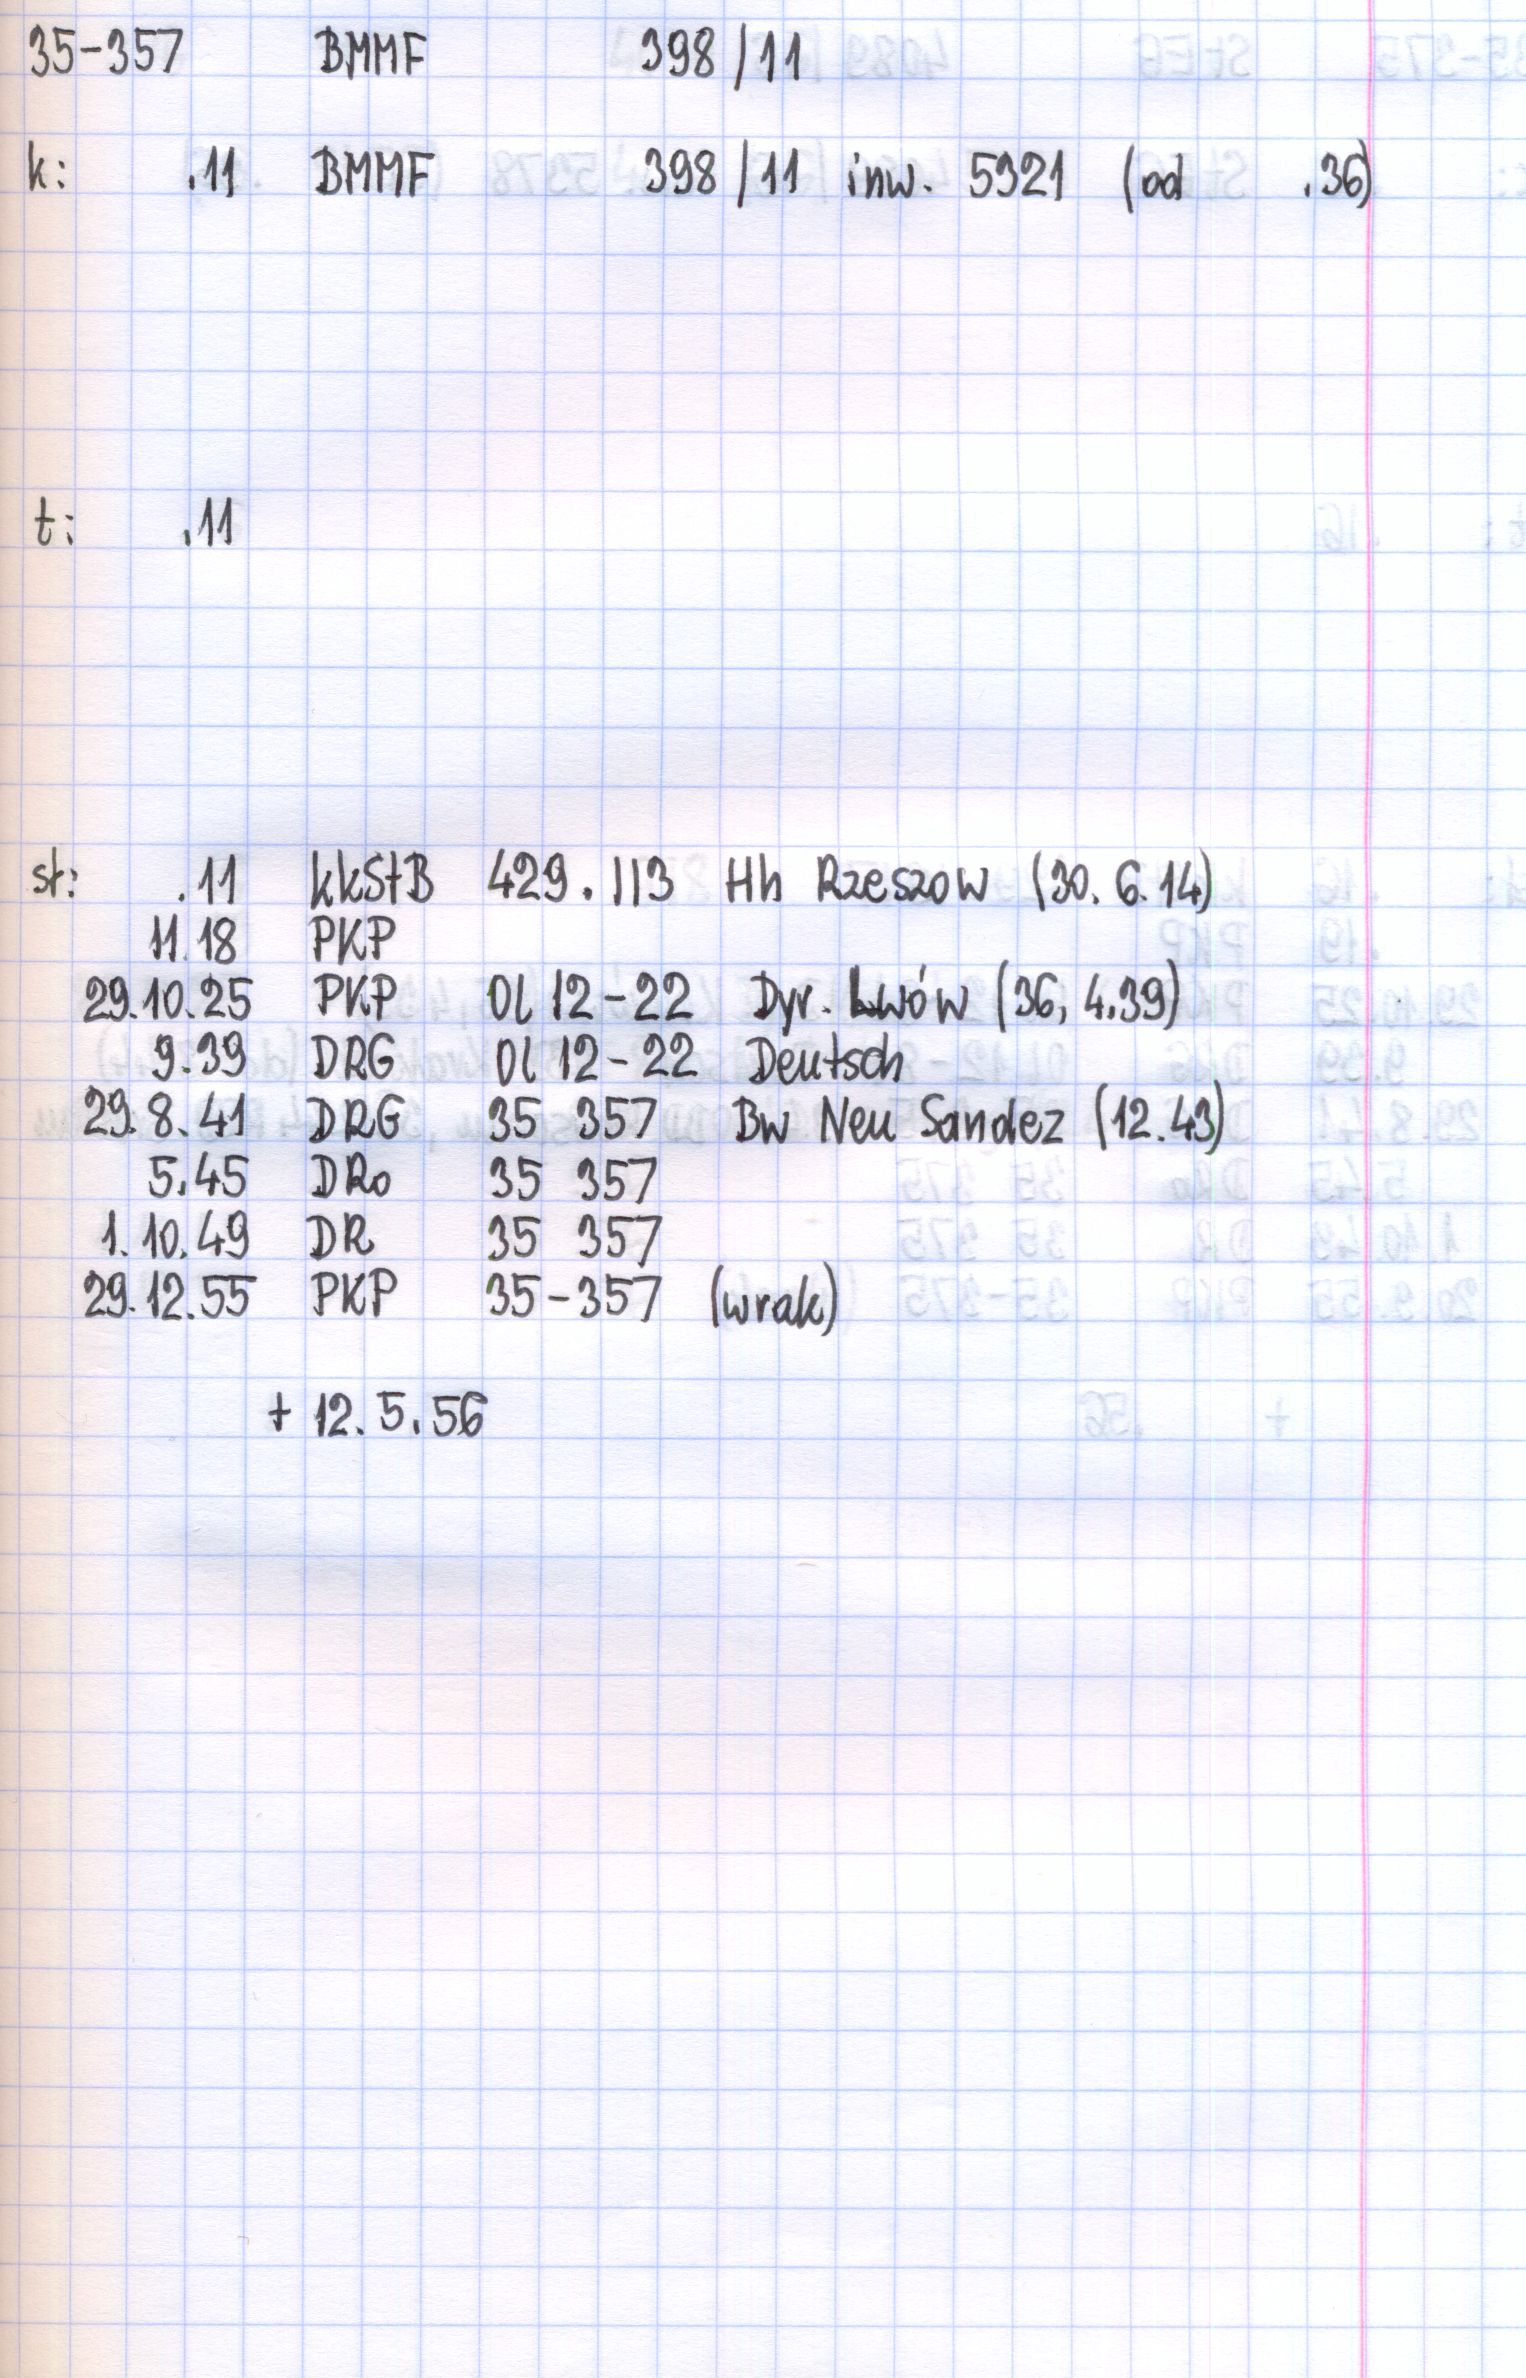 35-357 BMMF 398/11
k: .11 BMMF 398/11 inw. 5921 (od .36)
t: .11
st: .11 kkStB 429.113 Hh Rzeszow (30.6.14)
11.18 PKP
29.10.25 PKP Ol 12-22 Dyr. Lwów (36, 4.39)
9.39 DRG Ol 12-22 Deutsch
29.8.41 DRG 35 357 Bw Neu Sandez (12.43)
5.45 DRo 35 357
1.10.49 DR 35 357
29.12.55 PKP 35-357 (wrak)
+ 12.5.56